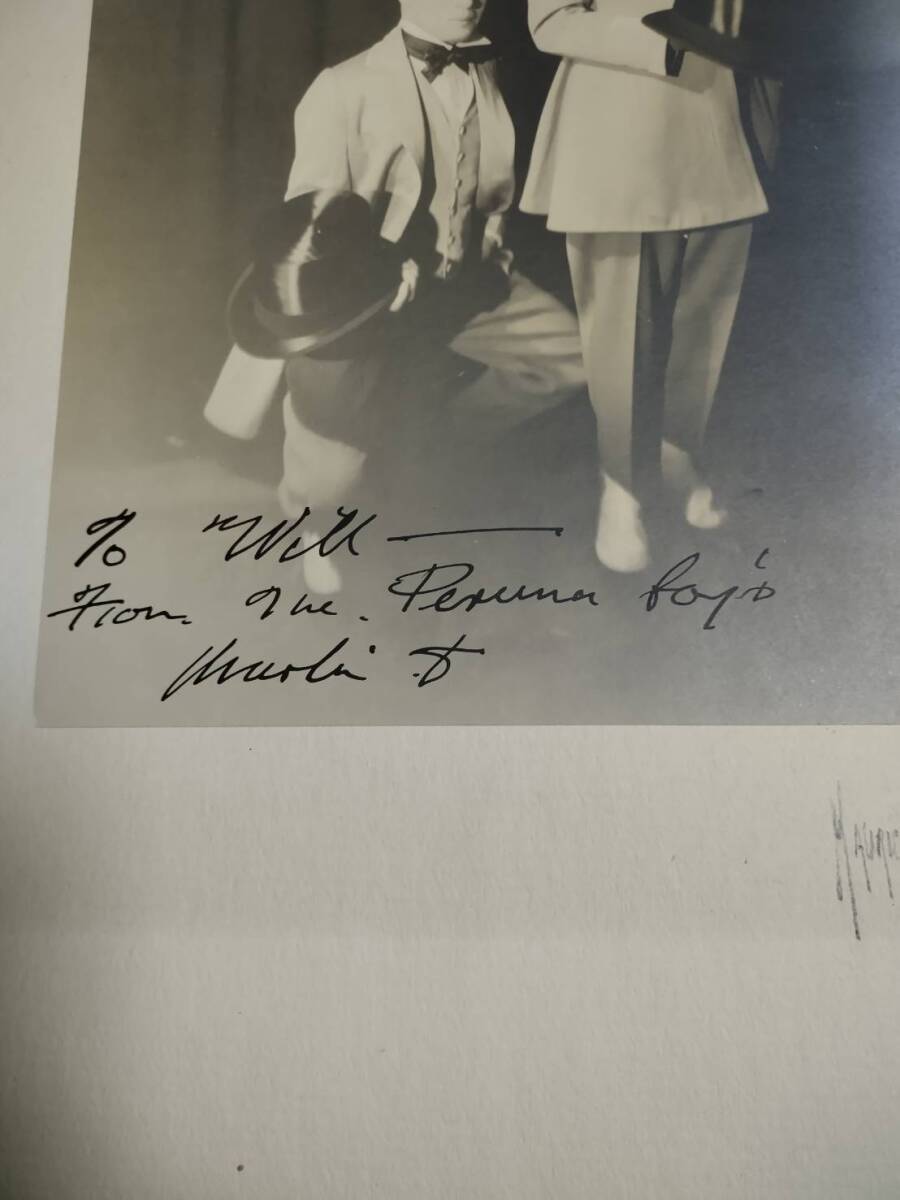 To Will —
From The. Peruna boy's
Marlin &